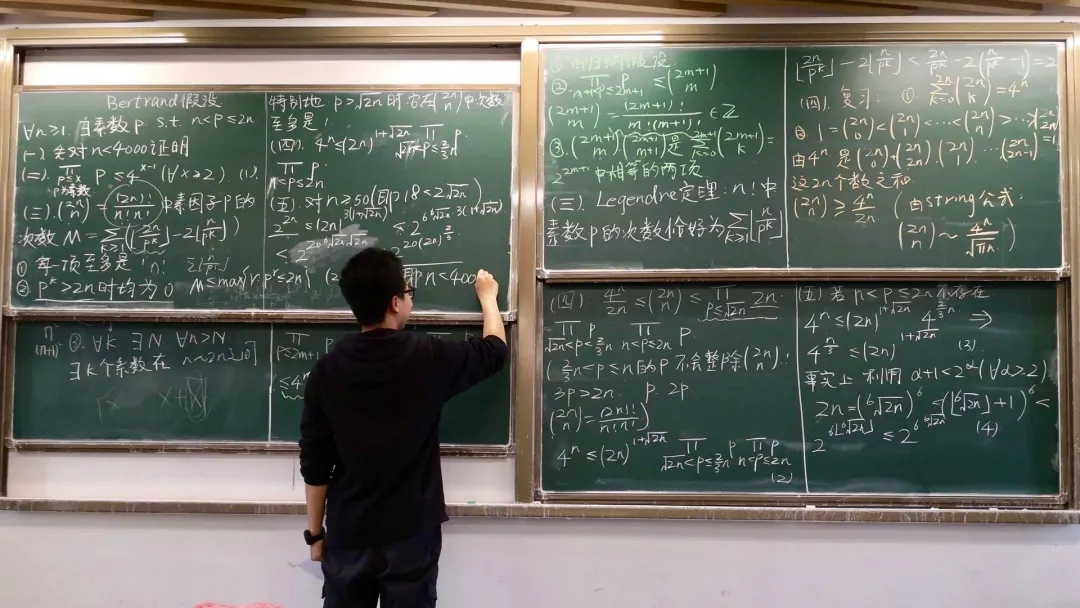 Bertrand假设
∀n≥1. ∃素数 p s.t. n<p≤2n
(一) 先对 n<4000 证明
(二). ∏ p ≤ 4^{x-1} (∀x≥2) (1).
p≤x
p为素数
(三). (2n n) = (2n)!/n!n! 中素因子 p 的
次数 M = ∑_{k≥1} (⌊2n/p^k⌋ - 2⌊n/p^k⌋)
① 每一项至多是 1
n! ∑⌊n/p^k⌋
② p^k>2n 时均为 0
M≤max{r: p^r≤2n}
特别地 p>√2n 时 它在 (2n n) 中次数
至多是 1
(四). 4^n ≤ (2n)^{1+√2n} ∏_{√2n<p≤2/3 n} p.
∏_{n<p≤2n} p.
(五). 对 n≥50 (即 18<2√2n)
2^{2n} ≤ (2n)^{3(1+√2n)}
≤ 2^{6 ⁶√2n · 3(1+√2n)}
即 n<400
n²
(n+1)²
③. ∀k ∃N ∀n>N
∃k个素数在 n~2n之间
∏
p≤2m+1
≤4^m
② ∏_{m+1<p≤2m+1} p ≤ (2m+1 m)
(2m+1 m) = (2m+1)!/m!(m+1)! ∈ ℤ
③. (2m+1 m) (2m+1 m+1) 是 ∑_{k=0}^{2m+1} (2m+1 k) =
2^{2m+1} 中相等的两项
(三). Legendre定理: n! 中
素数 p 的次数恰好为 ∑_{k≥1} ⌊n/p^k⌋
⌊2n/p^k⌋ - 2⌊n/p^k⌋ < 2n/p^k - 2(n/p^k - 1) = 2
(四). 复习: ①. ∑_{k=0}^{2n} (2n k) = 4^n
② 1 = (2n 0) < (2n 1) < … < (2n n) > … > (2n 2n) = 1
由 4^n 是 (2n 0)+(2n 2n), (2n 1), … (2n 2n-1)
这2n个数之和
(2n n) ≥ 4^n/2n (由string公式:
(2n n) ~ 4^n/√πn)
(四) 4^n/2n ≤ (2n n) ≤ ∏_{p≤√2n} 2n.
∏_{√2n<p≤2/3 n} p ∏_{n<p≤2n} p.
(2/3 n<p≤n 的 p 不会整除 (2n n):
3p>2n. p. 2p
(2n n) = (2n)!/n!n!)
4^n ≤ (2n)^{1+√2n} ∏_{√2n<p≤2/3 n} p ∏_{n<p≤2n} p
(2)
(五) 若 n<p≤2n 不存在
4^n ≤ (2n)^{1+√2n} 4^{2/3 n} ⇒
4^{n/3} ≤ (2n)^{1+√2n} (3)
事实上 利用 α+1<2^α (∀α≥2)
2n = (⁶√2n)^6 ≤ (⌊⁶√2n⌋+1)^6 <
2^{6⌊⁶√2n⌋} ≤ 2^{6 ⁶√2n} (4)